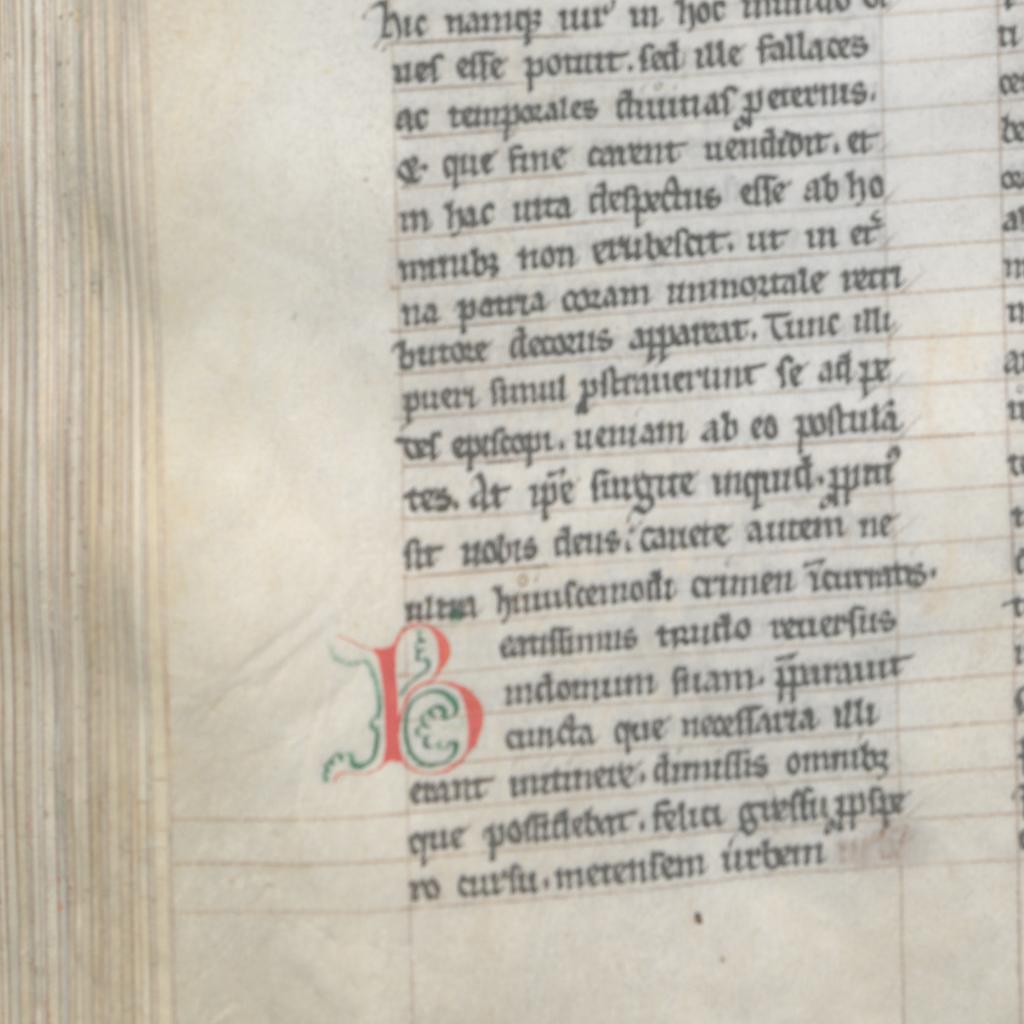 hic namq; uir in hoc mundo
ues esse potuit. sed ille fallaces
ac temporales diuitias p eternis.
& que fine carent uendidit. et
in hac uita despectus esse ab ho
minib; non erubescit. ut in et
na patria coram inmortale retri
butore decorus appareat. Tunc illi
pueri simul pstrauerunt se ad pe
des episcopi. ueniam ab eo postulā
tes. At ip̄e surgite inquid. ppiti
sit uobis deus. cauete autem ne
ultra huiuscemodi crimen īcurratis.
Beatissimus trudo reuersus
indomum suam. p̄parauit
cuncta que necessaria illi
erant itinere. dimissis omnib;
que possidebat. felici gressu pspe
ro cursu. metensem urbem